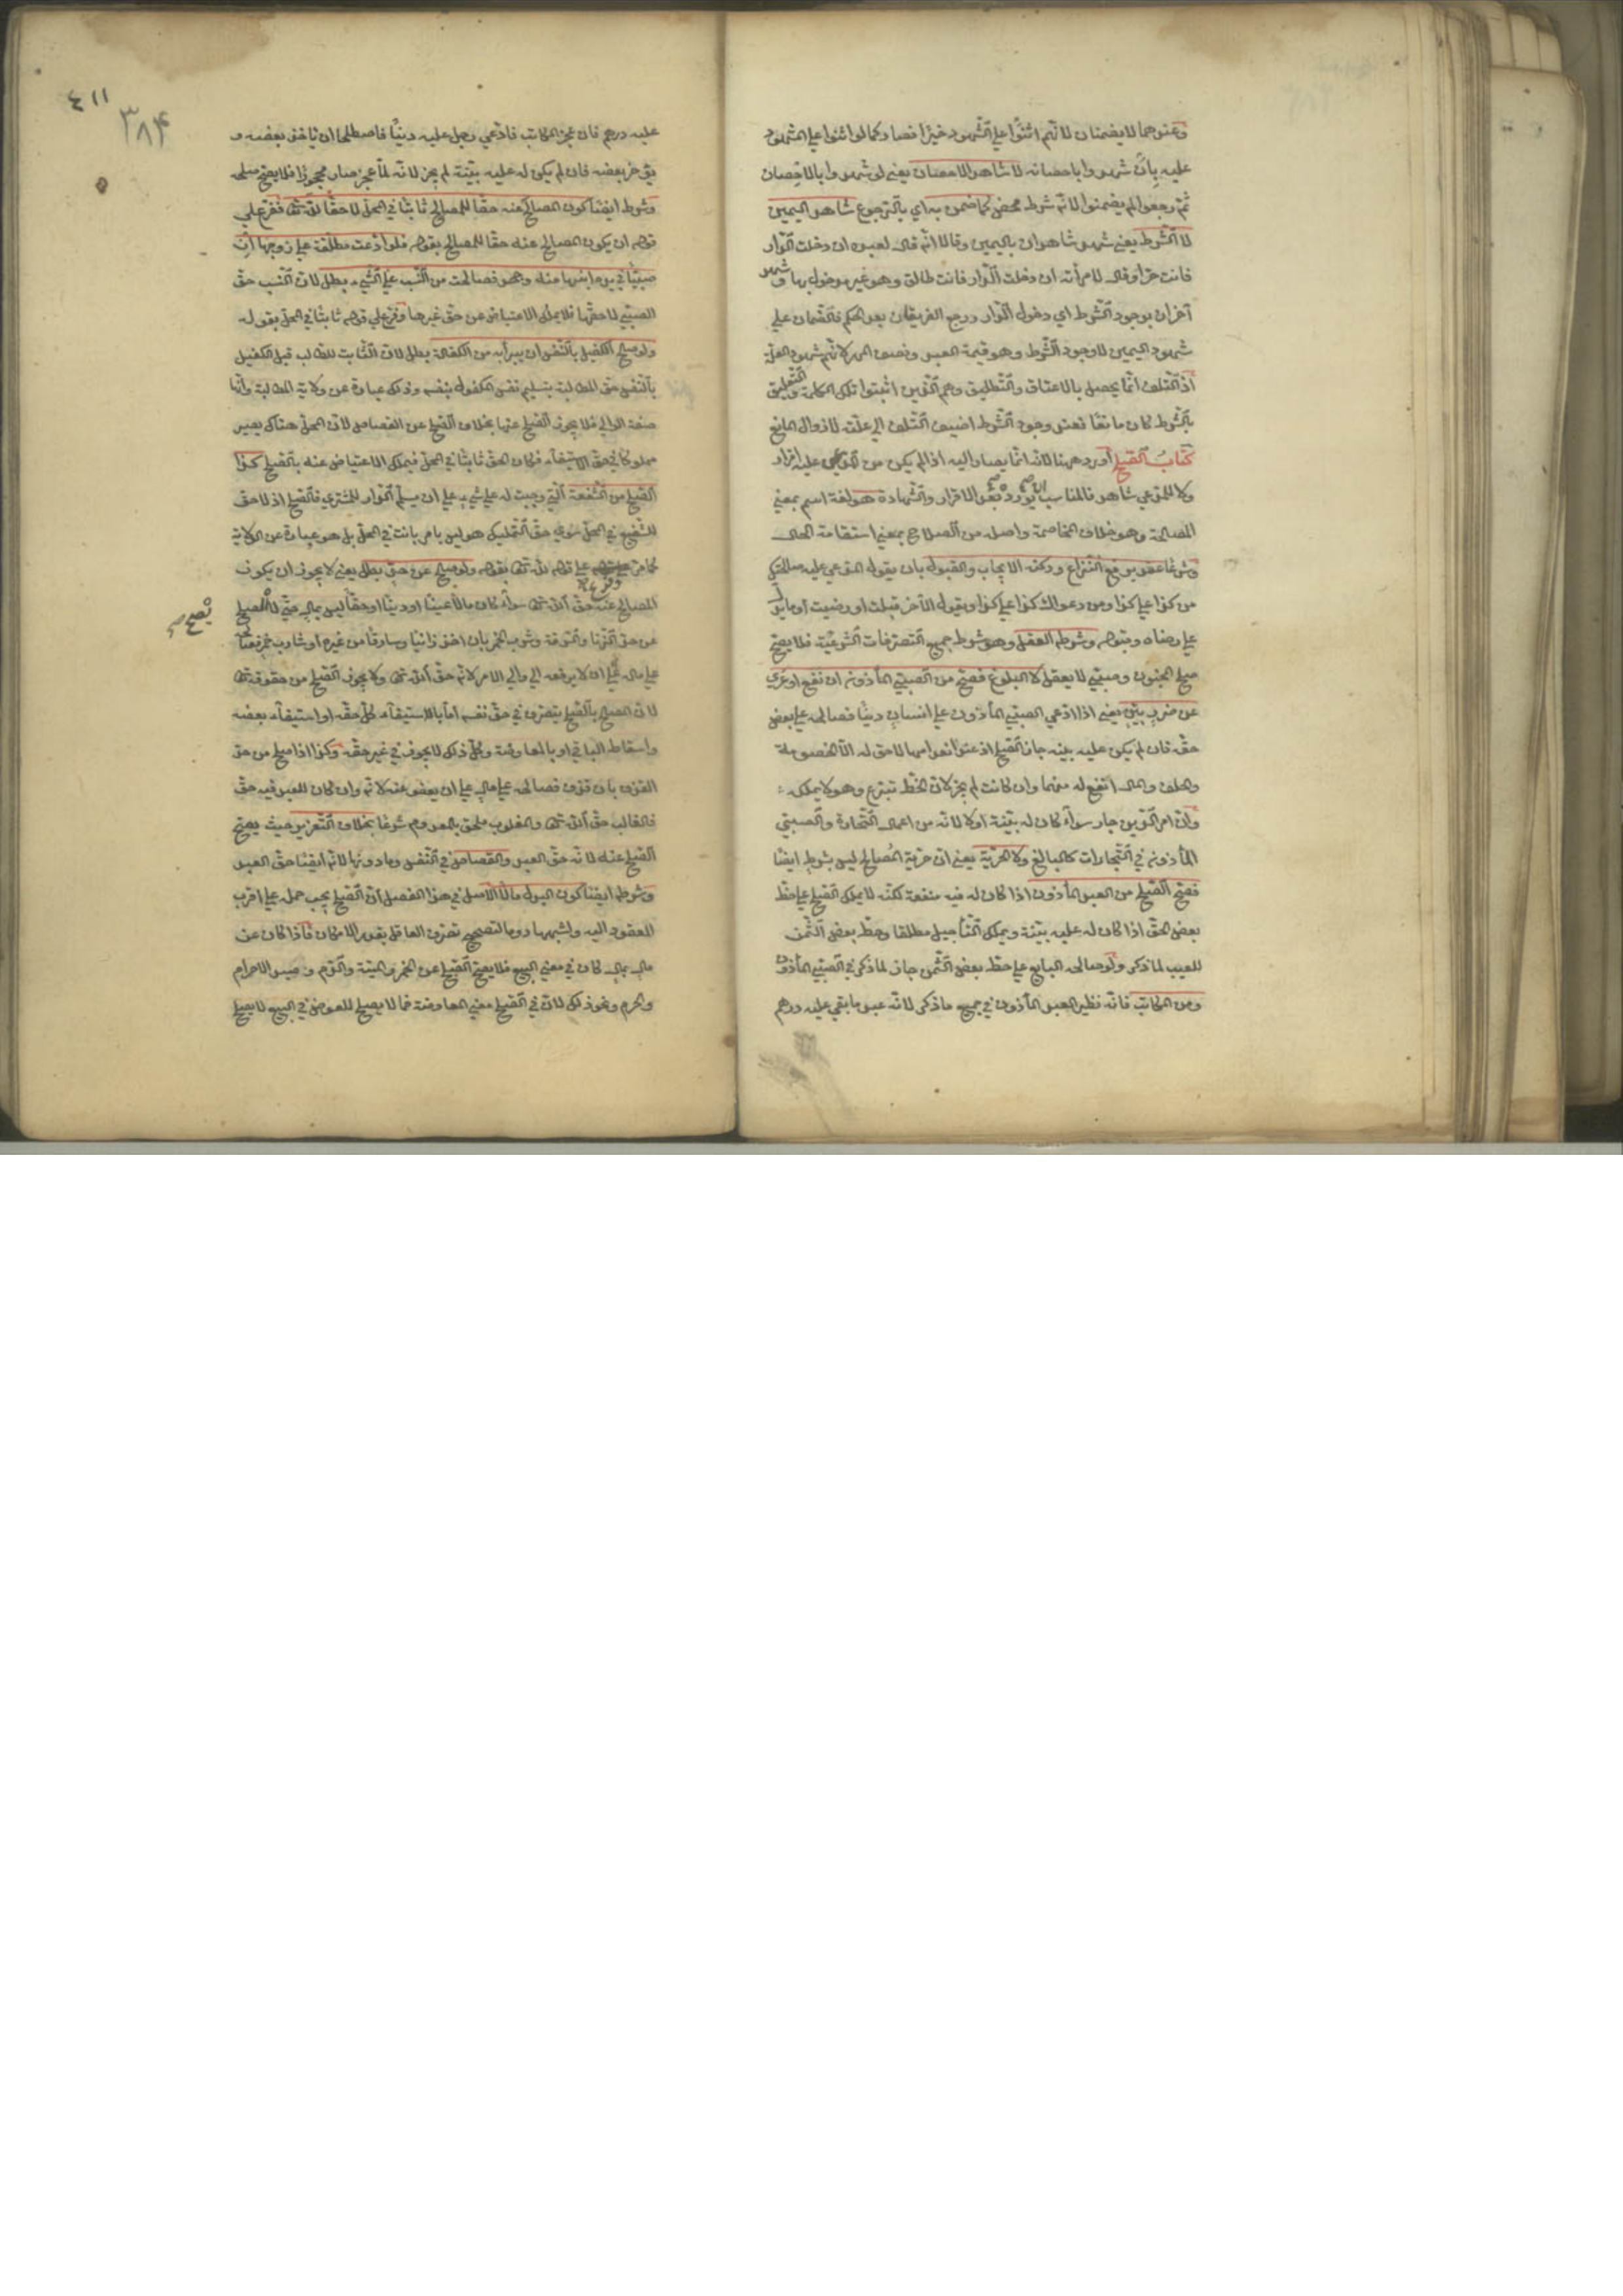 وعندهما لا يضمنان لانهم اثنوا على الشهود خيرا فصار كما لو اثنوا على المشهود
عليه بان شهدوا باحصانه لا شاهد الاحصان يعني لو شهدوا بالاحصان
ثم رجعوا لم يضمنوا لانه شرط محض كما ضمن به اي بالرجوع شاهد اليمين
لا الشرط يعني شهد شاهدان باليمين وقالا انه قال لعبده ان دخلت الدار
فانت حر او قال لامرأته ان دخلت الدار فانت طالق وهو غير مدخول بها وشهد
آخران بوجود الشرط اي دخول الدار ورجع الفريقان بعد الحكم فالضمان على
شهود اليمين لا وجود الشرط وهو قيمة العبد ونصف المهر لانهم شهود العلة
اذ التلف انما يحصل بالاعتاق والتطليق وهم الذين اثبتوا تلك الكلمة والتعليق
بالشرط كان مانعا فعند وجود الشرط اضيف التلف الى علته لا زوال المانع
كتاب الصلح اورده هنا لانه انما يصار اليه اذا لم يكن من المدعى عليه اقرار
ولا للمدعي شاهد فالمناسب ان يورد بعد الاقرار والشهادة هو لغة اسم بمعنى
المصالحة وهو خلاف المخاصمة واصله من الصلاح بمعنى استقامة الحال
وشرعا عقد يرفع النزاع وركنه الايجاب والقبول بان يقول المدعى عليه صالحتك
من كذا على كذا او من دعواك كذا على كذا ويقول الآخر قبلت او رضيت او ما يدل
على رضاه وقبوله وشرطه العقل وهو شرط جميع التصرفات الشرعية فلا يصح
صلح المجنون وصبي لا يعقل لا البلوغ فصح من الصبي المأذون ان نفع او عري
عن ضرر بين يعني اذا ادعى الصبي المأذون على انسان دينا فصالحه على بعض
حقه فان لم يكن عليه بينه جاز الصلح اذ عند انعدامها لا حق له الا الخصومة
والحلف والمال انفع له منهما وان كانت لم يجز لان الحط تبرع وهو لا يملكه
وان اخر الدين جاز سواء كان له بينة اولا لانه من اعمال التجارة والصبي
المأذون في التجارات كالبالغ ولا الحرية يعني ان حرية المصالح ليس بشرط ايضا
فصح الصلح من العبد المأذون اذا كان له فيه منفعة لكنه لا يملك الصلح على حط
بعض الحق اذا كان له عليه بينة ويملك التأجيل مطلقا وحط بعض الثمن
للعيب لما ذكر ولو صالحه البايع على حط بعض الثمن جاز لما ذكر في الصبي المأذون
ومن المكاتب فانه نظير العبد المأذون في جميع ما ذكر لانه عبد ما بقي عليه درهم
٤١١
٣٨۴
عليه درهم فان عجز المكاتب فادعى رجل عليه دينا فاصطلحا ان يأخذ بعضه و
يؤخر بعضه فان لم يكن له عليه بينة لم يجز لانه لما عجز صار محجورا فلا يصح صلحه
وشرط ايضا كون المصالح عنه حقا للمصالح ثابتا في المحل لا حقا لله تعالى ففرع على
قوله ان يكون المصالح عنه حقا للمصالح بقوله فلو ادعت مطلقة على زوجها ان
صبيا في يده ابنها منه وجحد فصالحت من النسب على شيء بطل لان النسب حق
الصبي لا حقها فلا يملك الاعتياض عن حق غيرها وفرع على قوله ثابتا في المحل بقوله
ولو صالح الكفيل بالنفس ان يبرأ به من الكفالة بطل لان الثابت للطالب قبل الكفيل
بالنفس حق المطالبة بتسليم نفس المكفول بنفسه وذلك عبارة عن ولاية المطالبة وانها
صفة الوالي فلا يجوز الصلح عنها بخلاف الصلح عن القصاص لان المحل هناك يصير
مملوكا في حق الاستيفاء فكان الحق ثابتا في المحل فيملك الاعتياض عنه بالصلح كذا
الصلح من الشفعة التي وجبت له على شيء على ان يسلم الدار للمشتري فالصلح اذ لا حق
للشفيع في المحل سوى حق التملك هو ليس بامر ثابت في المحل بل هو عبارة عن الولاية
كما مر وفرع على قوله لله تعالى بقوله ولو صالح عن حق بطل يعني لا يجوز ان يكون
المصالح عنه حق الله تعالى سواء كان مالا عينا او دينا او حقا ليس بمال حتى لا يصح الصلح
يصح صح
عن حق الزنا والسرقة وشرب الخمر بان اخذ زانيا او سارقا من غيره او شارب خمر فصالحه
على مال على ان لا يرفعه الى والي الامر لانه حق الله تعالى ولا يجوز الصلح من حقوقه تعالى
لان المصالح بالصلح يتصرف في حق نفسه اما باستيفاء كل حقه او استيفاء بعضه
واسقاط الباقي او بالمعاوضة وكل ذلك لا يجوز في غير حقه وكذا اذا صالح من حد
القذف بان قذف فصالحه على مال على ان يعفو عنه لانه وان كان للعبد فيه حق
فالغالب حق الله تعالى والمغلوب ملحق بالمعدوم شرعا بخلاف التعزير حيث يصح
الصلح عنه لانه حق العبد والقصاص في النفس وما دونها لانه ايضا حق العبد
وشرط ايضا كون البدل مالا الاصل في هذا الفصل ان الصلح يجب حمله على اقرب
العقود اليه واشبهها روما لتصحيح تصرف العاقل بقدر الامكان فاذا كان عن
مال بمال كان في معنى البيع فلا يصح الصلح عن الخمر والميتة والدم وصيد الاحرام
والحرم ونحو ذلك لان في الصلح معنى المعاوضة فما لا يصلح للعوض في البيع لا يصلح